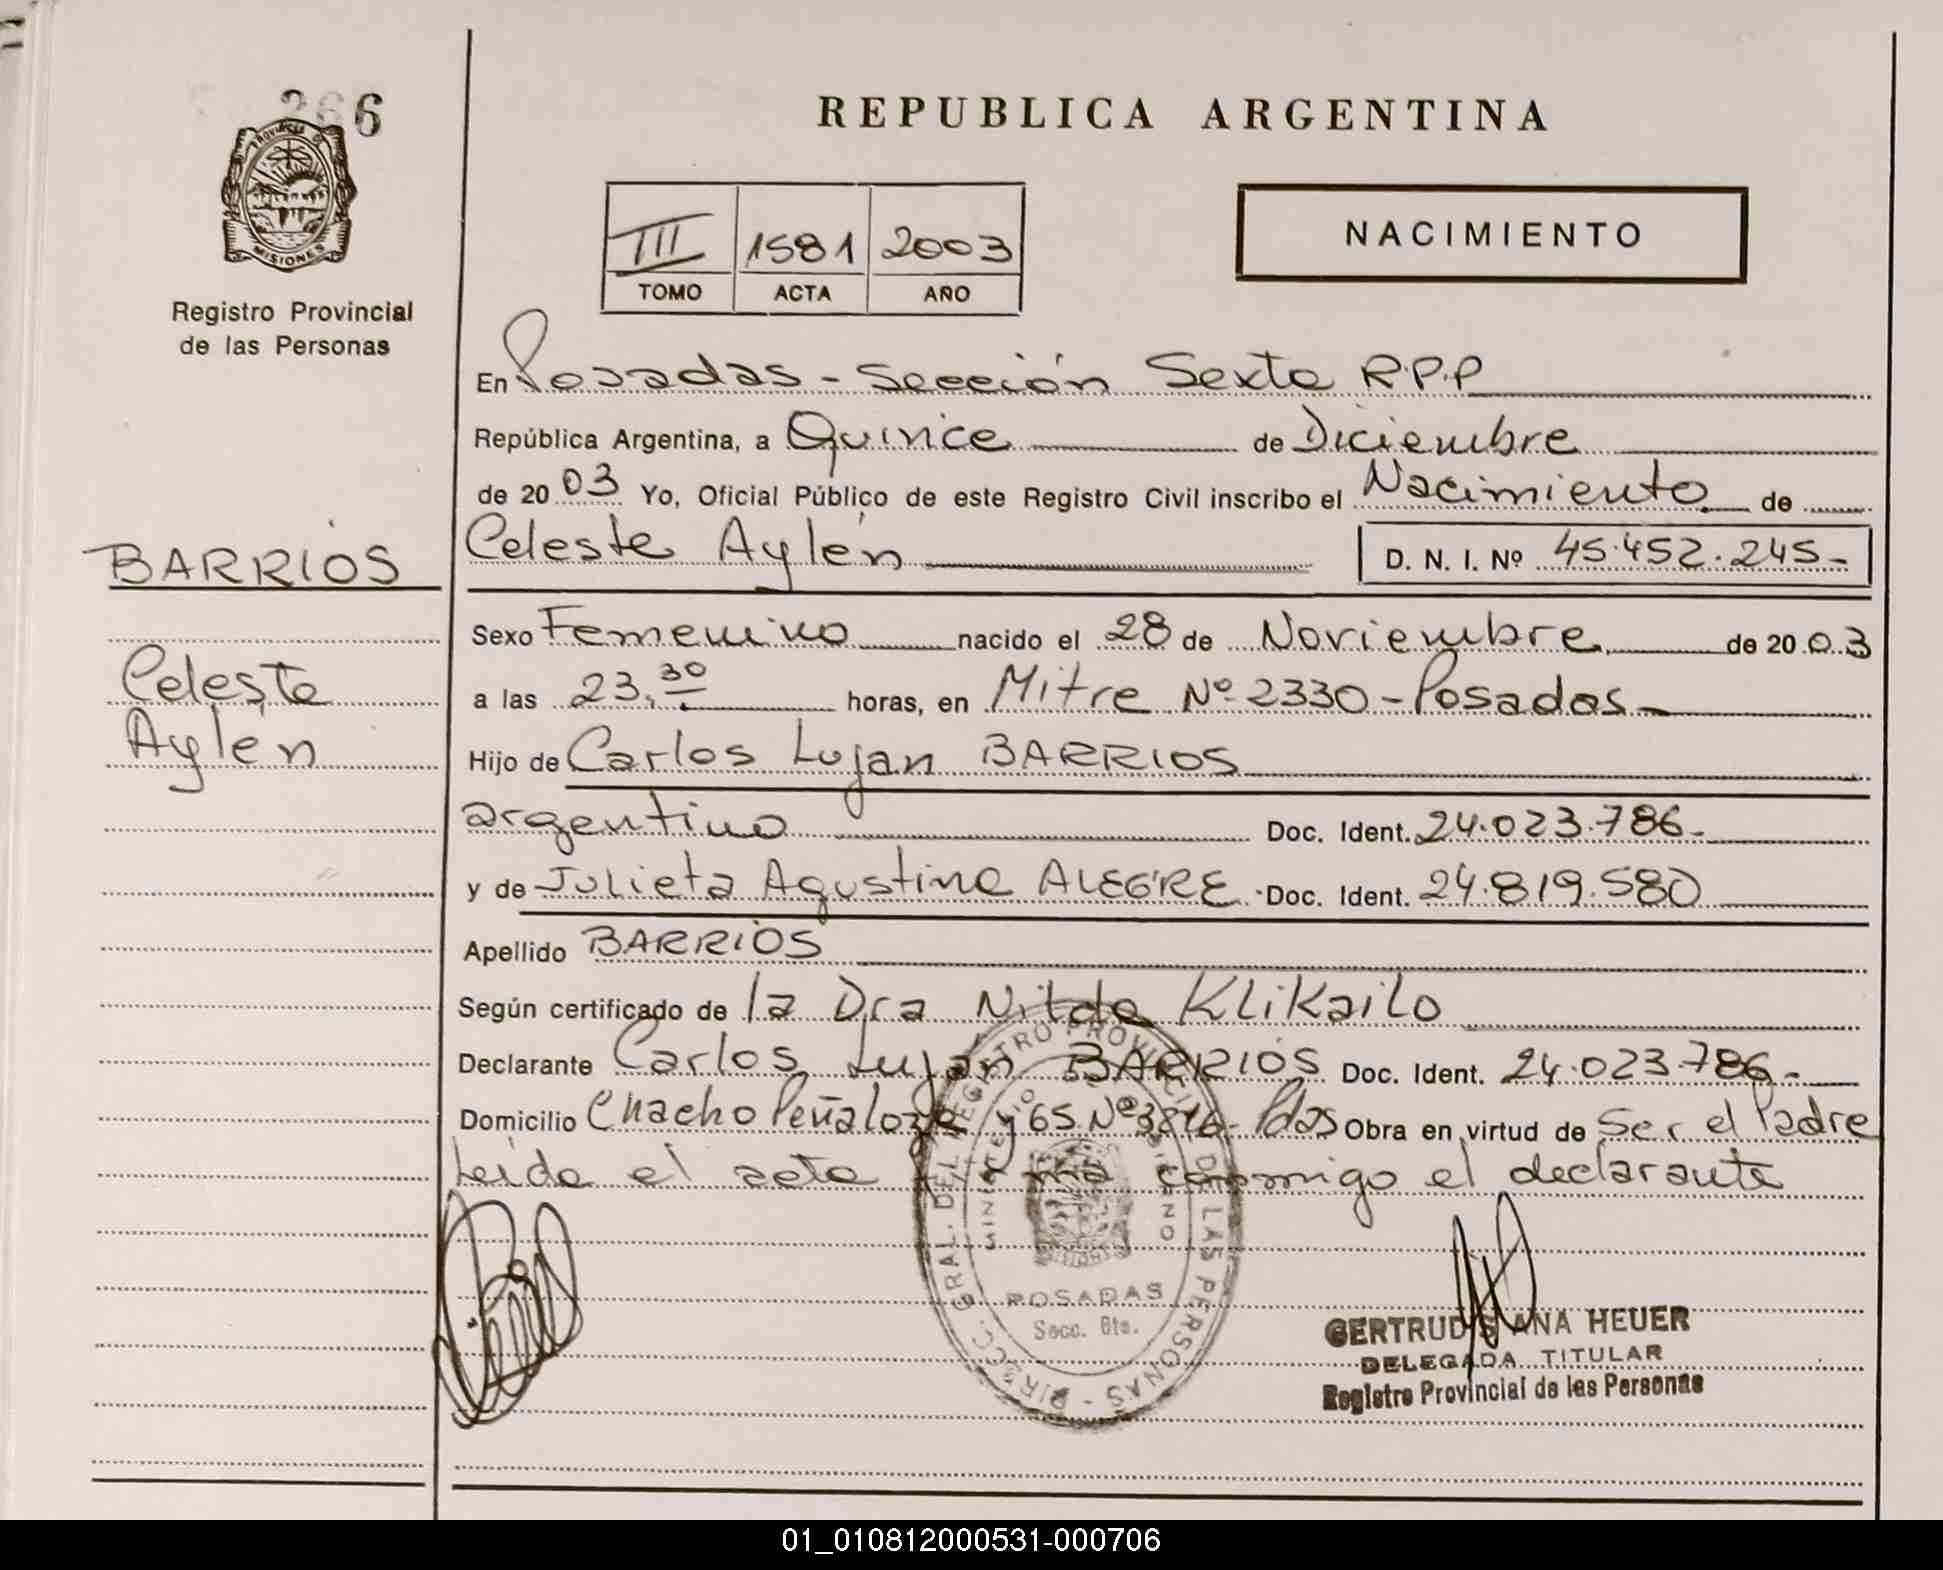 266
PROVINCIA DE
MISIONES
Registro Provincial
de las Personas
REPUBLICA ARGENTINA
III 1581 2003
TOMO ACTA AÑO
NACIMIENTO
En Posadas - Sección Sexta R.P.P
República Argentina, a Quince de Diciembre
de 2003 Yo, Oficial Público de este Registro Civil inscribo el Nacimiento de
BARRIOS
Celeste Aylén D. N. I. Nº 45.452.245-
Sexo Femenino nacido el 28 de Noviembre de 2003
Celeste
Aylén
a las 23,30 horas, en Mitre Nº 2330 - Posadas
Hijo de Carlos Lujan BARRIOS
argentino Doc. Ident. 24.023.786-
y de Julieta Agustina ALEGRE Doc. Ident. 24.819.580
Apellido BARRIOS
Según certificado de la Dra Nilda Klikailo
Declarante Carlos Lujan BARRIOS Doc. Ident. 24.023.786-
Domicilio Chacho Peñaloza y 65 Nº Pdas Obra en virtud de Ser el Padre
Leida el acta conmigo el declarante
DIRECC. GRAL. DEL REGISTRO PROVINCIAL DE LAS PERSONAS
MINISTERIO GOBIERNO
POSADAS
Secc. 6ta.
GERTRUDIS ANA HEUER
DELEGADA TITULAR
Registro Provincial de las Personas
01_010812000531-000706